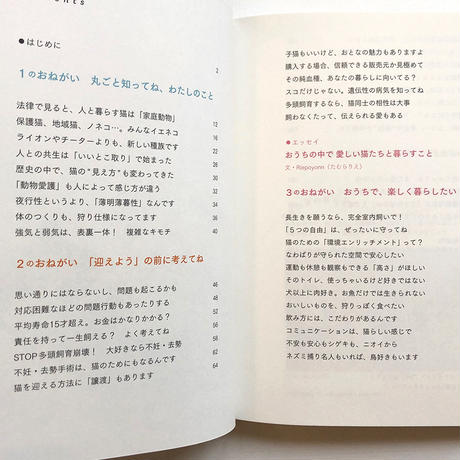 ●はじめに 2
1のおねがい 丸ごと知ってね、わたしのこと
法律で見ると、人と暮らす猫は「家庭動物」 12
保護猫、地域猫、ノネコ…。みんなイエネコ 16
ライオンやチーターよりも、新しい種族です
人との共生は「いいとこ取り」で始まった
歴史の中で、猫の"見え方"も変わってきた
「動物愛護」も人によって感じ方が違う
夜行性というより、「薄明薄暮性」なんです
体のつくりも、狩り仕様になってます
強気と弱気は、表裏一体! 複雑なキモチ 40
2のおねがい 「迎えよう」の前に考えてね
思い通りにはならないし、問題も起こるかも 46
対応困難なほどの問題行動もあったりする 50
平均寿命15才超え。お金はかなりかかる? 54
責任を持って一生飼える? よく考えてね 56
STOP多頭飼育崩壊! 大好きなら不妊・去勢 58
不妊・去勢手術は、猫のためにもなるんです 62
猫を迎える方法に「譲渡」もあります 64
子猫もいいけど、おとなの魅力もありますよ
購入する場合、信頼できる販売元か見極めて
その純血種、あなたの暮らしに向いてる?
スコだけじゃない。遺伝性の病気を知ってね
多頭飼育するなら、猫同士の相性は大事
飼わなくたって、伝えられる愛もある
●エッセイ
おうちの中で 愛しい猫たちと暮らすこと
文・Riepoyonn(たむらりえ)
3のおねがい おうちで、楽しく暮らしたい
長生きを願うなら、完全室内飼いで!
「5つの自由」は、ぜったいに守ってね
猫のための「環境エンリッチメント」って?
なわばりが守られた空間で安心したい
運動も休息も観察もできる「高さ」がほしい
そのトイレ、使っちゃいるけど好きではない
犬以上に肉好き。お魚だけでは生きられない
おいしいものを、狩りっぽく食べたい
飲み方には、こだわりがあるんです
コミュニケーションは、猫らしい感じで
不安も安心もシゲキも、ニオイから
ネズミ捕り名人もいれば、鳥好きもいます